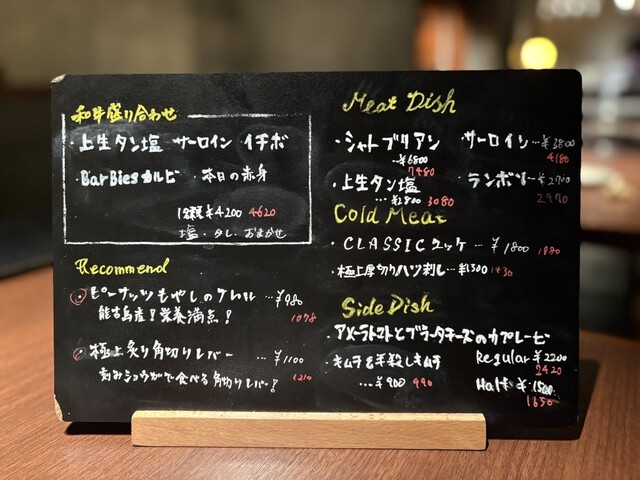 和牛盛り合わせ
・上生タン塩 サーロイン イチボ
・BarBiesカルビ ・本日の赤身
1種類¥4200 4620
塩・タレ・おまかせ
Recommend
・ピーナッツもやしのナムル …¥980
能古島産!栄養満点! 1078
・極上炙り角切りレバー …¥1100
刻みショウガで食べる角切りレバー! 1210
Meat Dish
・シャトブリアン
…¥6800
7480
・サーロイン…¥3800
4180
・上生タン塩
…¥2800 3080
・ランボソ…¥2700
2970
Cold Meat
・CLASSICユッケ …¥1800 1980
・極上厚切りハツ刺し…¥1300 1430
Side Dish
・アメーラトマトとブラータチーズのカプレーゼ
Regular ¥2200
2420
Half ¥1500
1650
・キムチ&手殺しキムチ
…¥900 990